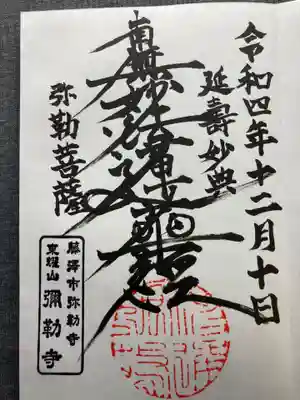 令和四年十二月十日
延壽妙典
南無妙法蓮華経
弥勒菩薩
藤澤市弥勒寺
東程山
彌勒寺